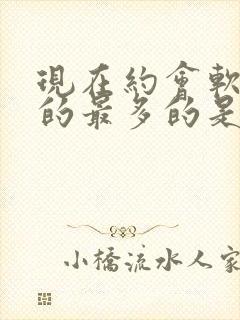 現在約會軟
的最多的是
小橋流水人家